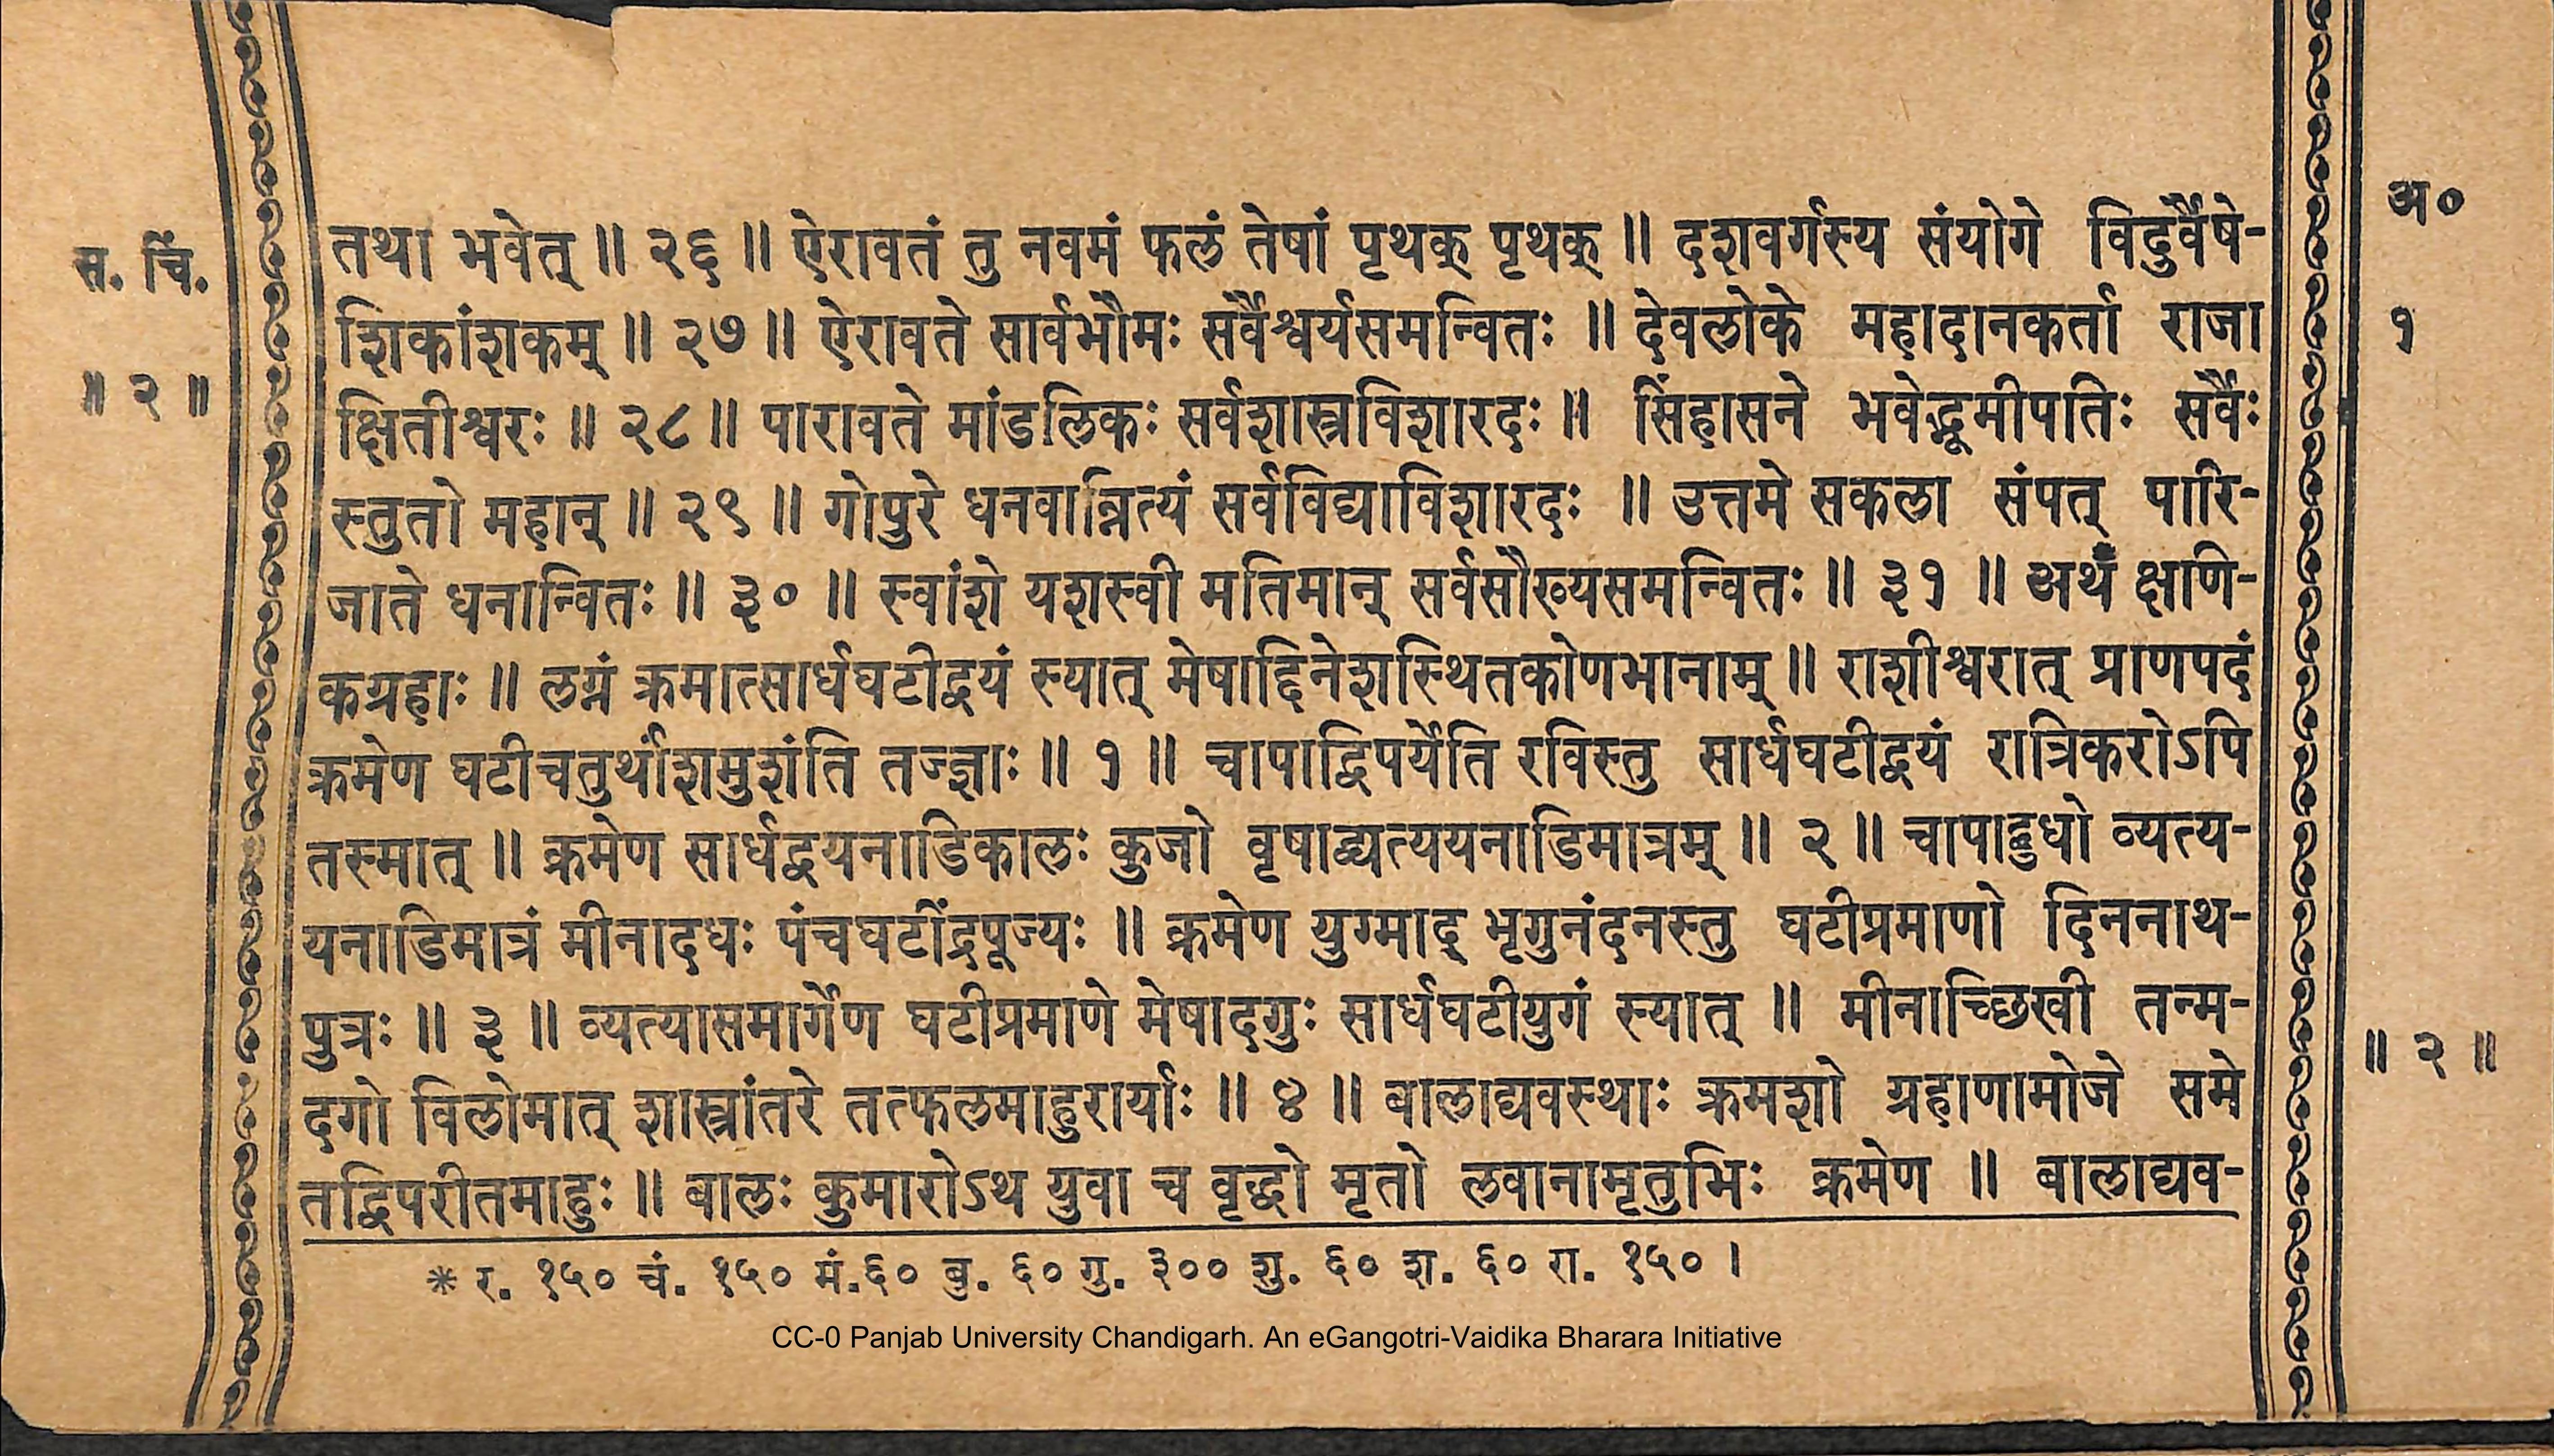 स. चिं.
॥ २ ॥
अ०
१
तथा भवेत् ॥ २६ ॥ ऐरावतं तु नवमं फलं तेषां पृथक् पृथक् ॥ दशवर्गस्य संयोगे विदुर्वैषे-
शिकांशकम् ॥ २७ ॥ ऐरावते सार्वभौमः सर्वैश्वर्यसमन्वितः ॥ देवलोके महादानकर्ता राजा
क्षितीश्वरः ॥ २८ ॥ पारावते मांडलिकः सर्वशास्त्रविशारदः ॥ सिंहासने भवेद्भूमीपतिः सर्वैः
स्तुतो महान् ॥ २९ ॥ गोपुरे धनवान्नित्यं सर्वविद्याविशारदः ॥ उत्तमे सकला संपत् पारि-
जाते धनान्वितः ॥ ३० ॥ स्वांशे यशस्वी मतिमान् सर्वसौख्यसमन्वितः ॥ ३१ ॥ अथ क्षणि-
कग्रहाः ॥ लग्नं क्रमात्सार्धघटीद्वयं स्यात् मेषाद्दिनेशस्थितकोणभानाम् ॥ राशीश्वरात् प्राणपदं
क्रमेण घटीचतुर्थांशमुशंति तज्ज्ञाः ॥ १ ॥ चापाद्विपर्येति रविस्तु सार्धघटीद्वयं रात्रिकरोऽपि
तस्मात् ॥ क्रमेण सार्धद्वयनाडिकालः कुजो वृषाद्व्यत्ययनाडिमात्रम् ॥ २ ॥ चापाद्बुधो व्यत्य-
यनाडिमात्रं मीनादधः पंचघटींद्रपूज्यः ॥ क्रमेण युग्माद् भृगुनंदनस्तु घटीप्रमाणो दिननाथ-
पुत्रः ॥ ३ ॥ व्यत्यासमार्गेण घटीप्रमाणे मेषादगुः सार्धघटीयुगं स्यात् ॥ मीनाच्छिखी तन्म-
दगो विलोमात् शास्त्रांतरे तत्फलमाहुरार्याः ॥ ४ ॥ बालाद्यवस्थाः क्रमशो ग्रहाणामोजे समे
तद्विपरीतमाहुः ॥ बालः कुमारोऽथ युवा च वृद्धो मृतो लवानामृतुभिः क्रमेण ॥ बालाद्यव-
॥ २ ॥
* र. १५० चं. १५० मं.६० बु. ६० गु. ३०० शु. ६० श. ६० रा. १५० ।
CC-0 Panjab University Chandigarh. An eGangotri-Vaidika Bharara Initiative